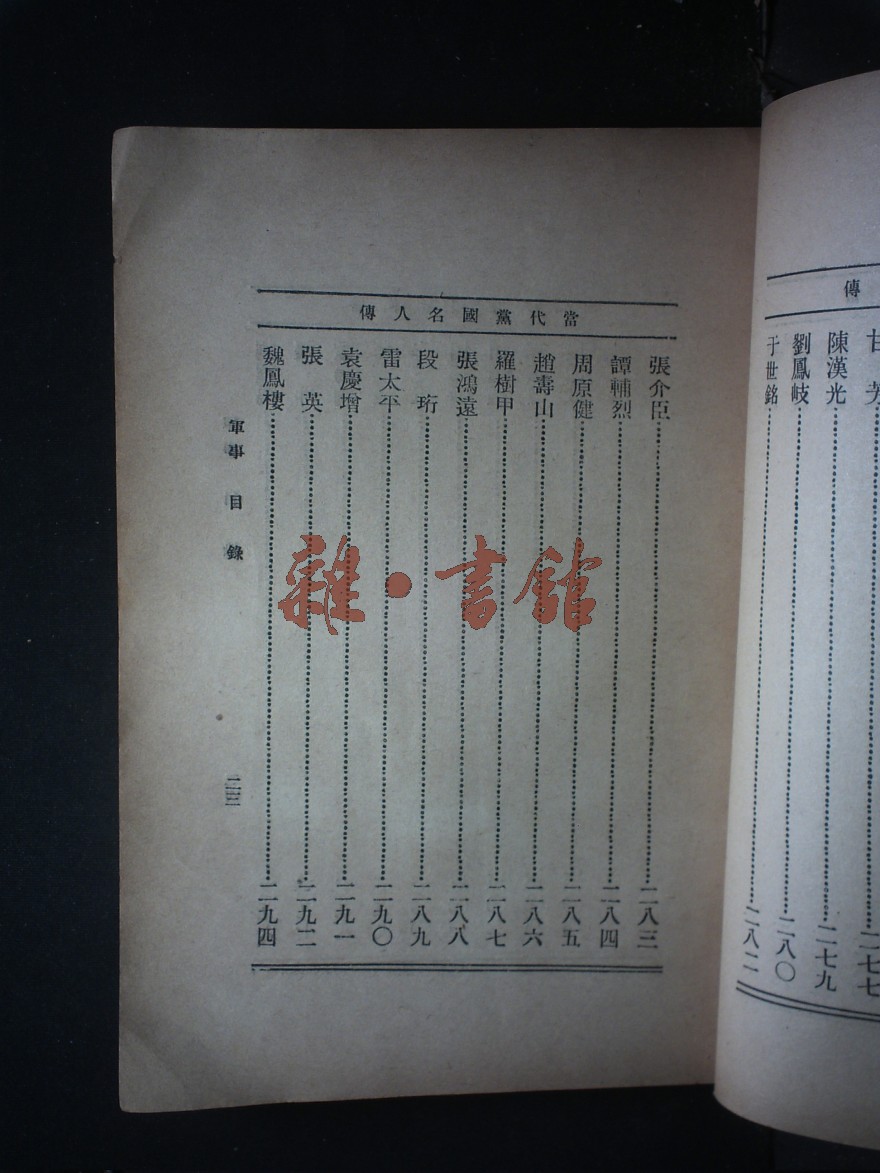 傳
甘芳……二七七
陳漢光……二七九
劉鳳岐……二八〇
于世銘……二八二
當代黨國名人傳
張介臣……二八三
譚輔烈……二八四
周原健……二八五
趙壽山……二八六
羅樹甲……二八七
張鴻遠……二八八
段珩……二八九
雷太平……二九〇
袁慶增……二九一
張英……二九二
魏鳳樓……二九四
軍事目錄
雜·書館